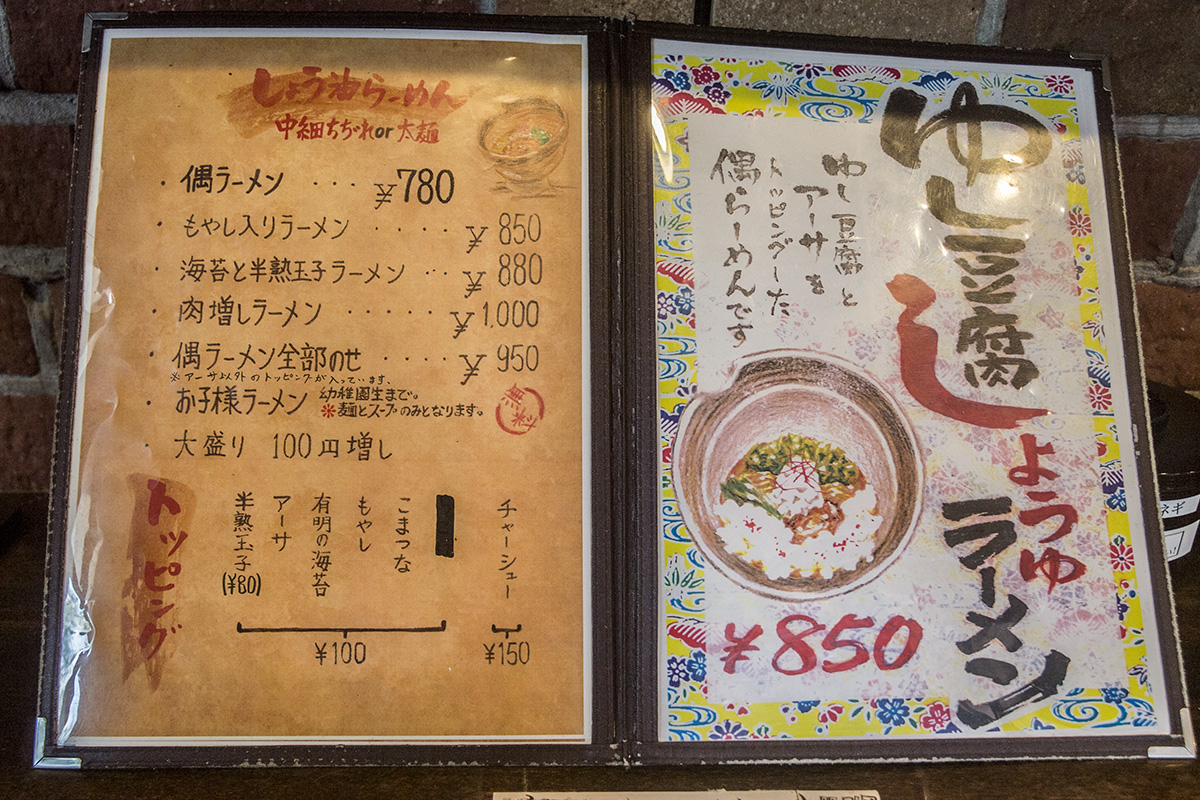 しょう油らーめん
中細ちぢれor太麺
・偶ラーメン ・・・ ¥780
・もやし入りラーメン ・・・・・ ¥850
・海苔と半熟玉子ラーメン ・・ ¥880
・肉増しラーメン ・・・・・ ¥1.000
・偶ラーメン全部のせ ・・・・ ¥950
※アーサ以外のトッピングが入っています。
・お子様ラーメン 幼稚園生まで。
※麺とスープのみとなります。
無料
・大盛り 100円増し
トッピング
チャーシュー
¥150
こまつな
もやし
有明の海苔
アーサ
半熟玉子
(¥80)
¥100
ゆし豆腐
しょうゆ
ラーメン
ゆし豆腐と
アーサを
トッピングした
偶らーめんです
¥850
ネギ